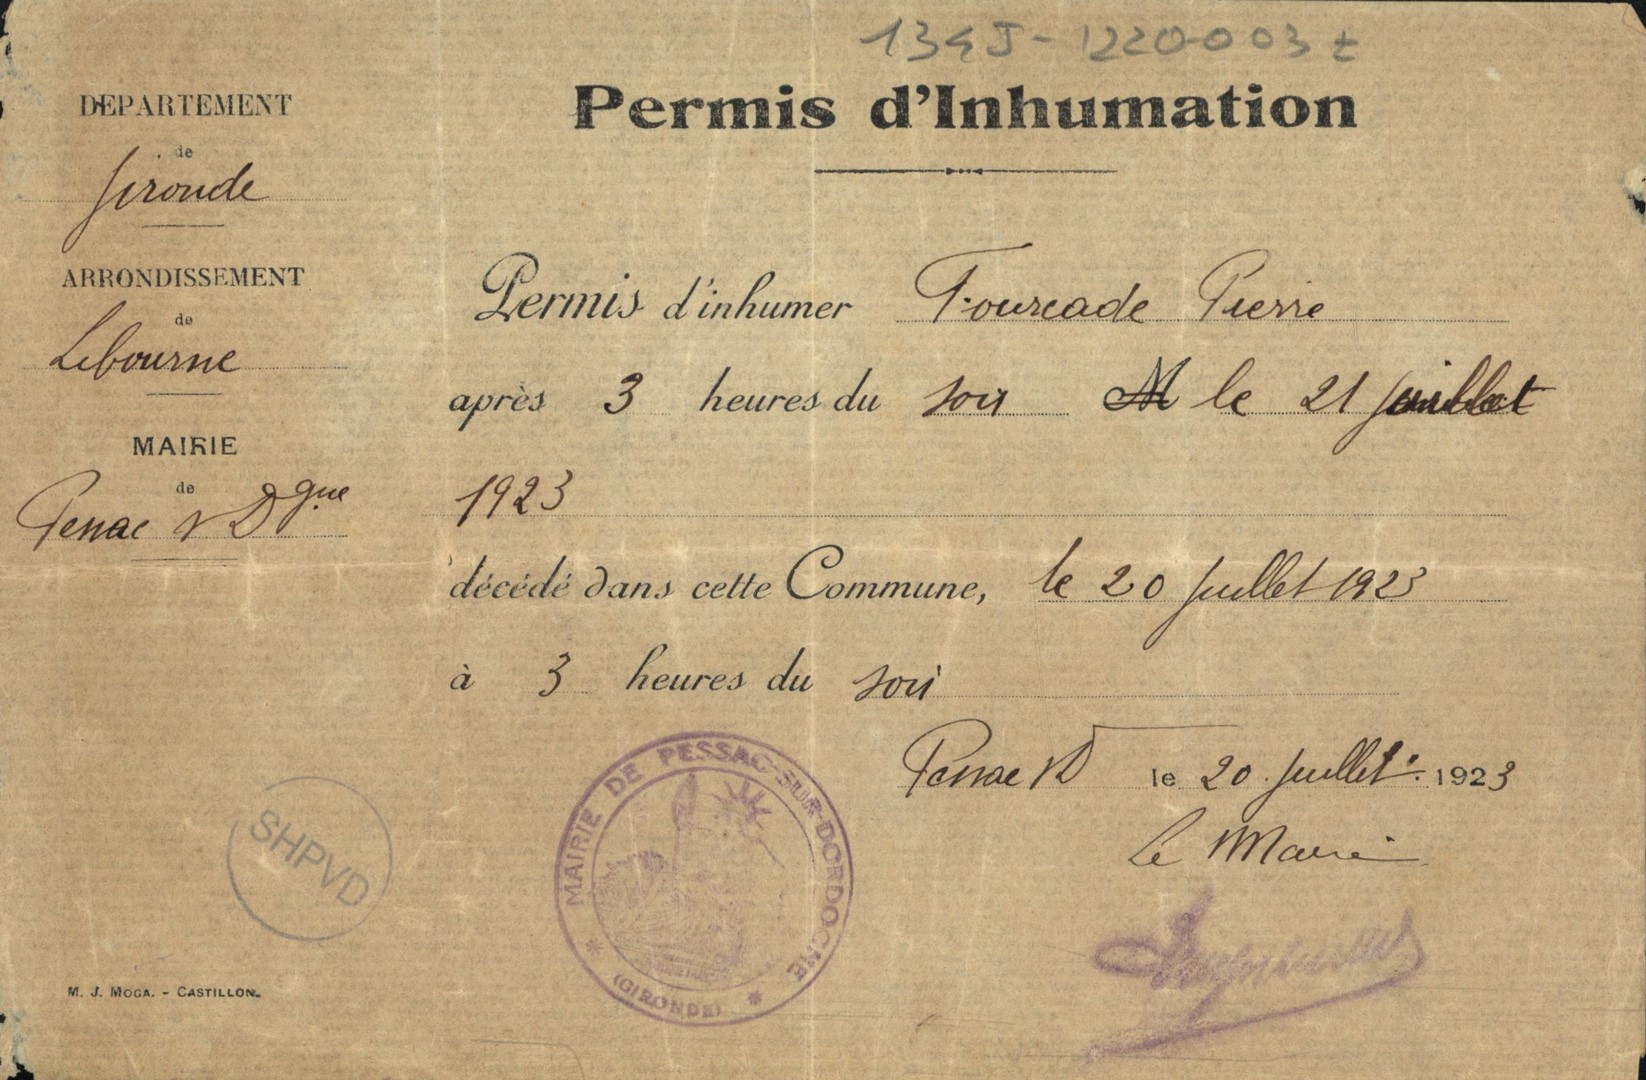 134J-1220-003
Permis d'Inhumation
DEPARTEMENT
de
Gironde
ARRONDISSEMENT
de
Libourne
MAIRIE
de
Pessac s/ Dgne
Permis d'inhumer Fourcade Pierre
après 3 heures du soir M le 21 juillet
1923
décédé dans cette Commune, le 20 juillet 1923
à 3 heures du soir
Pessac s/D le 20 juillet 1923
Le Maire
MAIRIE DE PESSAC-SUR-DORDOGNE
(GIRONDE)
SHPVD
M. J. MOGA. - CASTILLON.